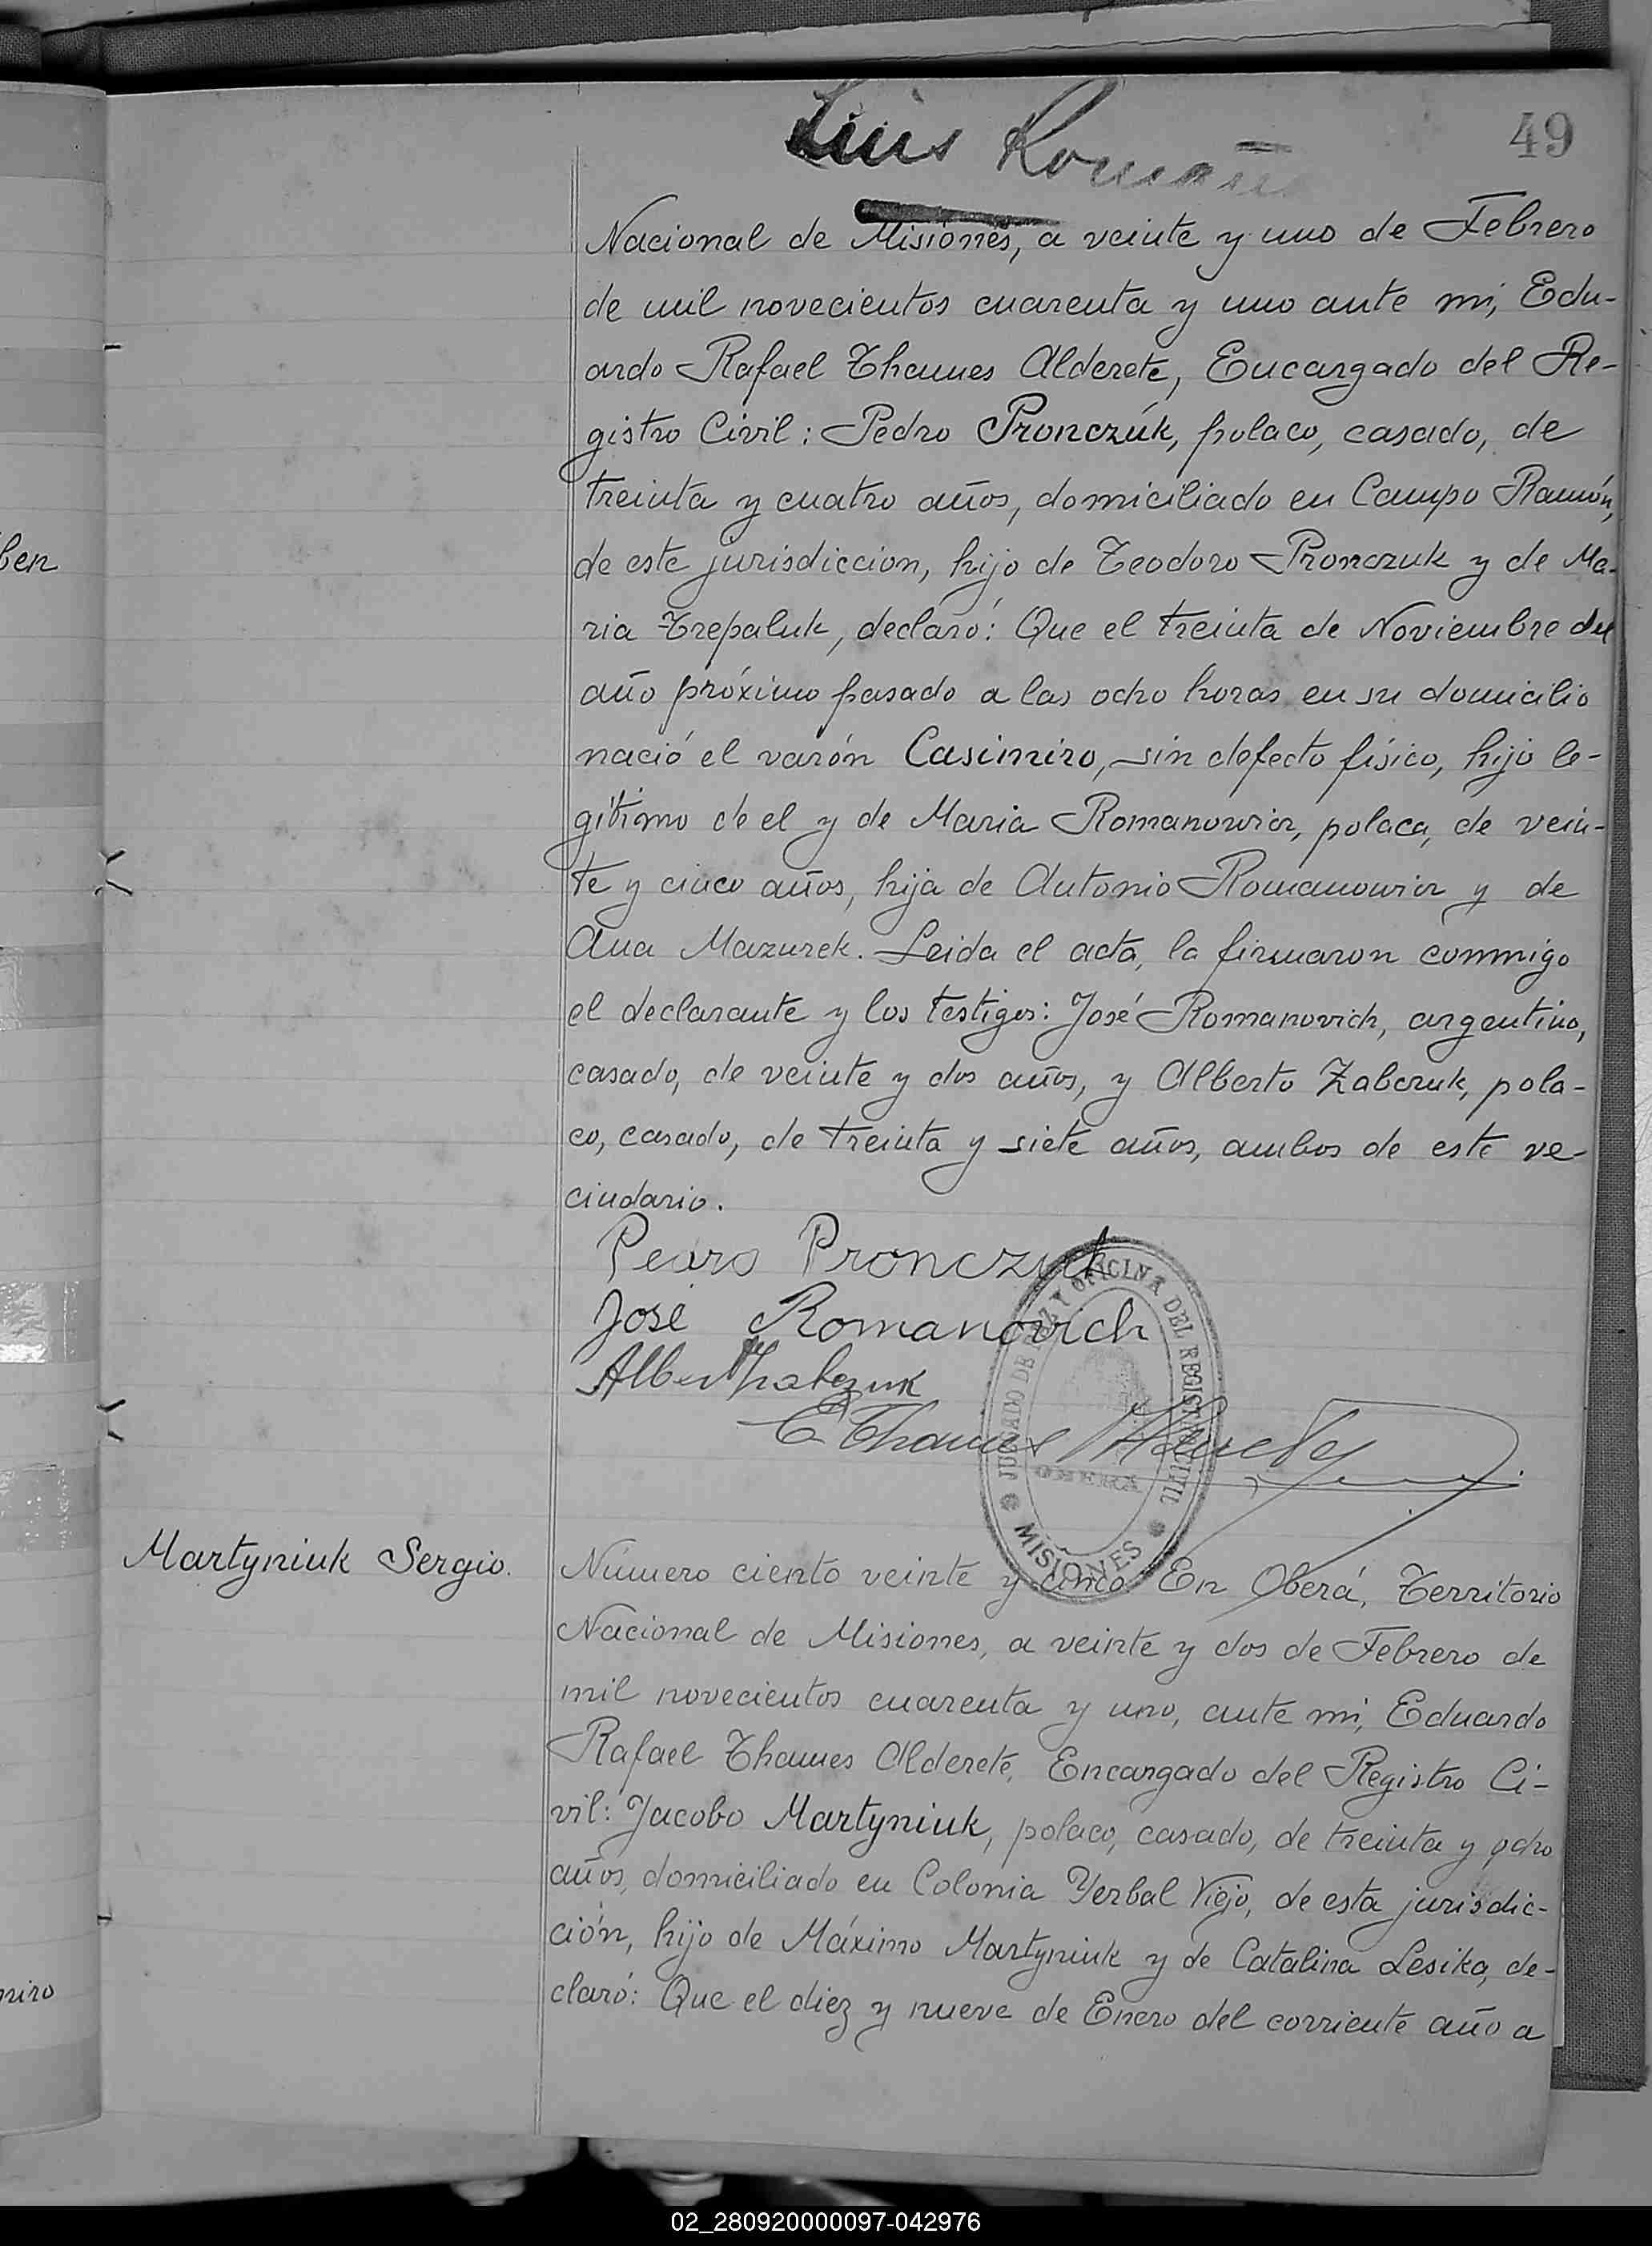 Luis Roman
49
Nacional de Misiones, a veinte y uno de Febrero
de mil novecientos cuarenta y uno ante mi, Edu-
ardo Rafael Thames Alderete, Encargado del Re-
gistro Civil: Pedro Pronczúk, polaco, casado, de
treinta y cuatro años, domiciliado en Campo Ramón,
de este jurisdiccion, hijo de Teodoro Pronczuk y de Ma-
ria Trepaluk, declaró: Que el treinta de Noviembre del
año próximo pasado a las ocho horas en su domicilio
nació el varón Casimiro, sin defecto físico, hijo le-
gítimo de el y de Maria Romanowicz, polaca, de vein-
te y cinco años, hija de Antonio Romanowicz y de
Ana Mazurek. Leida el acta, la firmaron conmigo
el declarante y los testigos: José Romanovich, argentino,
casado, de veinte y dos años, y Alberto Zabczuk, pola-
co, casado, de treinta y siete años, ambos de este ve-
cindario.
Pedro Pronczuk
José Romanovich
E Thames Alderete
JUZGADO DE PAZ Y OFICINA DEL REGISTRO CIVIL
OBERÁ
MISIONES
ben
Martyniuk Sergio.
Número ciento veinte y cinco En Oberá, Territorio
Nacional de Misiones, a veinte y dos de Febrero de
mil novecientos cuarenta y uno, ante mi, Eduardo
Rafael Thames Alderete, Encargado del Registro Ci-
vil: Jacobo Martyniuk, polaco, casado, de treinta y ocho
años, domiciliado en Colonia Yerbal Viejo, de esta jurisdic-
ción, hijo de Máximo Martyniuk y de Catalina Lesika, de-
claró: Que el diez y nueve de Enero del corriente año a
miro
02_280920000097-042976